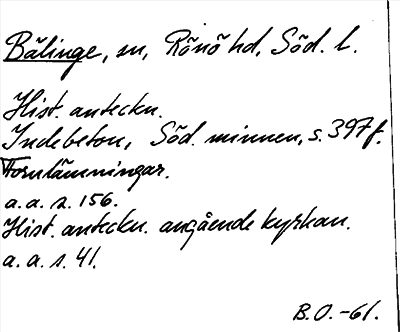 Bälinge, sn, Rönö hd, Söd. l.
Hist. anteckn.
Indebetou, Söd. minnen, s. 397 f.
Fornlämningar.
a. a. s. 156.
Hist. anteckn. angående kyrkan.
a. a. s. 41.
B.O.-61.